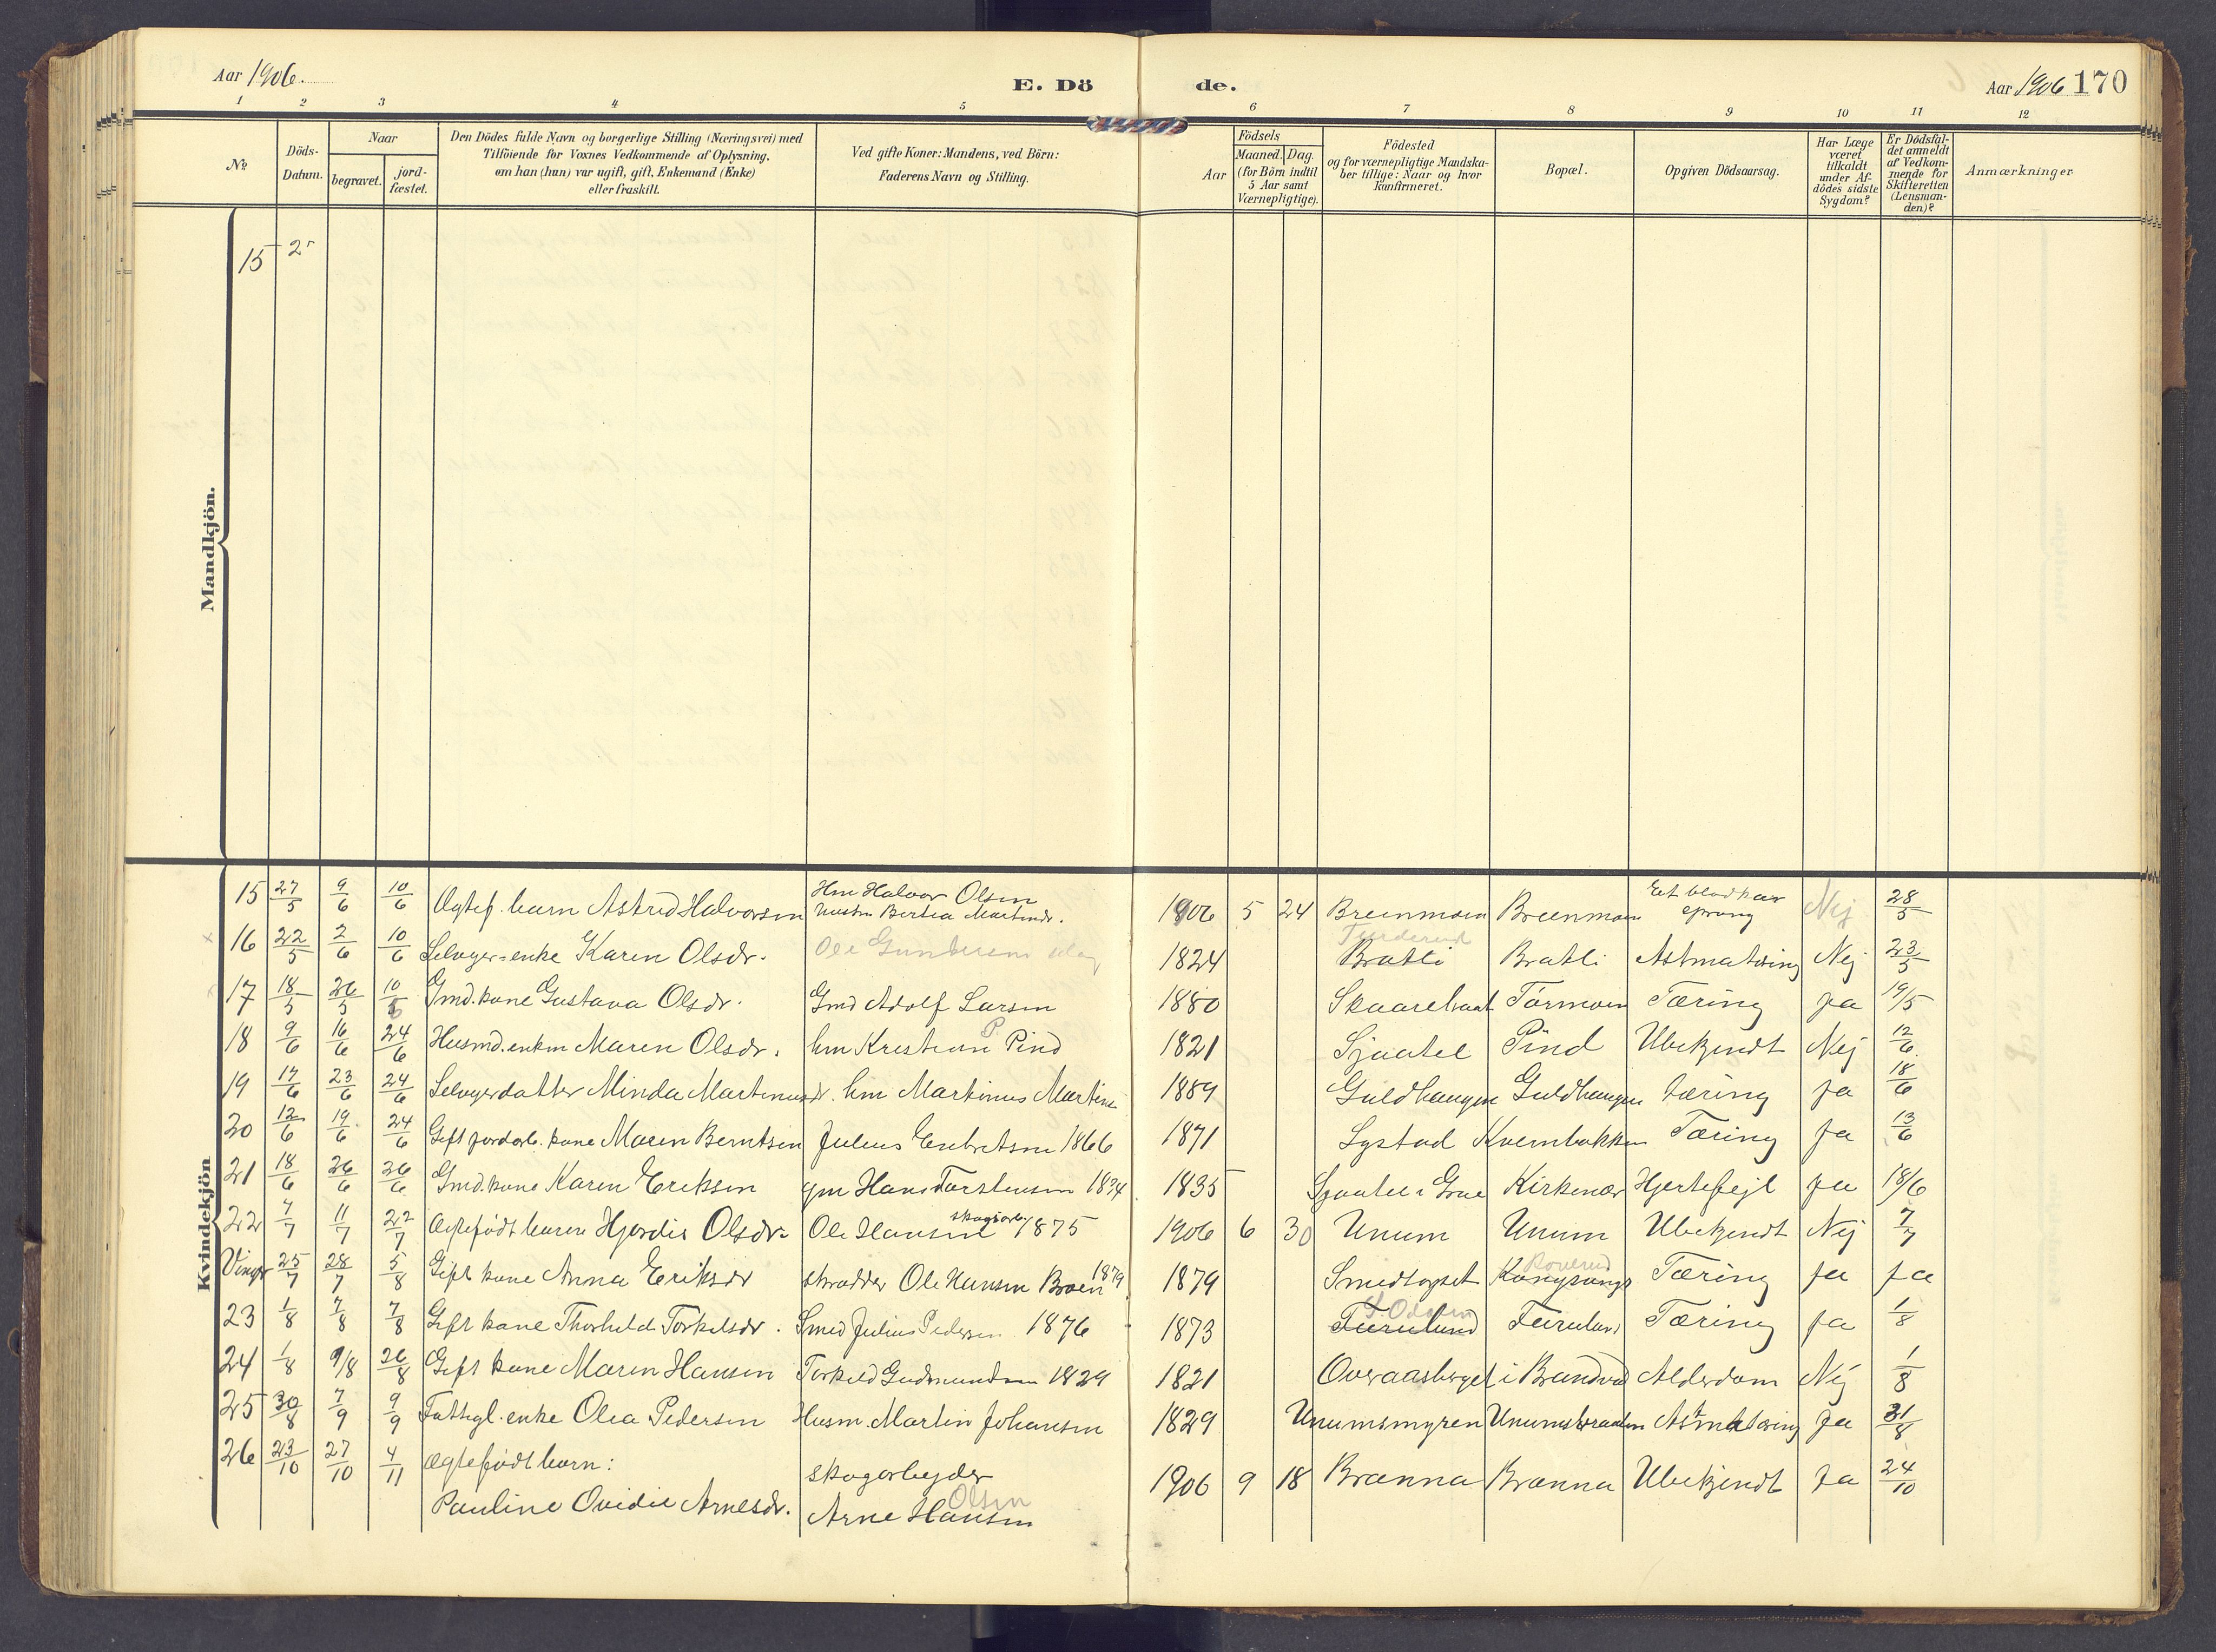 Aar 1906.
E. Dö de.
Aar 1906 170
1 2 3 4 5 6 7 8 9 10 11 12
№
Döds-Datum.
Naar
begravet.
jord-fæstet.
Den Dödes fulde Navn og borgerlige Stilling (Næringsvei) med
Tilföiende for Voxnes Vedkommende af Oplysning,
om han (hun) var ugift, gift, Enkemand (Enke)
eller fraskilt.
Ved gifte Koner: Mandens, ved Börn:
Faderens Navn og Stilling.
Födsels
Aar
Maaned. Dag.
(for Börn indtil
5 Aar samt
Værnepligtige).
Födested
og for værnepligtige Mandska-
ber tillige: Naar og hvor
konfirmeret.
Bopæl.
Opgiven Dödsaarsag.
Har Læge
været
tilkaldt
under Af-
dödes sidste
Sygdom?
Er Dödsfal-
det anmeldt
af Vedkom-
mende for
Skifteretten
(Lensman-
den)?
Anmærkninger
Mandkjön.
15
Kvindekjön
15 27/5 9/6 10/6 Ægtef. barn Astrid Halvorsen Hm Halvor Olsen Hustru Bertea Martinsdr. 1906 5 24 Breenmoen Breenmoen Et blodkar sprang Nej 28/5
16 22/5 2/6 10/6 Selveyer-enke Karen Olsdr. Ole 1824 Bratli Bratli Astmatæring Nej 23/5
17 18/5 26/5 10/6 Gmd.kone Gustava Olsdr. Gmd Adolf Larsen 1880 Tørmoen Tæring ja 19/5
18 9/6 16/6 24/6 Husmd.enken Maren Olsdr. hm Kristian P Pind 1821 Sjaatel Pind Ubekjendt Nej 12/6
19 17/6 23/6 24/6 Selveyerdatter Minda Martinusdr. hm Martinus Martins 1889 Guldhaugen Guldhaugen tæring ja 18/6
20 12/6 19/6 24/6 Gift jordarb. kone Maren Berntsen Julius Enbretsen 1866 1871 Systad Kvernbakken Tæring ja 13/6
21 18/6 26/6 26/6 Gmd.kone Karen Eriksen gm Hans Torstensen 1834 1835 Sjaatel i Grue Kirkenær Hjertefejl ja 18/6
22 7/7 11/7 22/7 Ægtefødt barn Hjerdis Olsdr. Ole Hansen skogsarb. 1875 1906 6 30 Unum Unum Ubekjendt Nej 7/7
Vinger 25/7 28/7 5/8 Gift kone Anna Eriksdr skrædder Ole Hansen Broen 1879 1879 Smedtopset Kongsvinger Roverud Tæring ja ja
23 1/8 7/8 7/8 Gift kone Thorhild Torkelsdr. Smed Julius Pedersen 1876 1873 Furulund Furulund Tæring ja 1/8
24 1/8 9/8 26/8 Gift kone Maren Hansen Torkild Gudmundsen 1829 1821 Overaasberget i Brandval Alderdom Nej 1/8
25 30/8 7/9 9/9 Fattigl. enke Olea Pedersen Husm. Martin Johansen 1829 Unumsmyren Unumsbraaten Astmatæring ja 31/8
26 23/10 27/10 4/11 Ægtefødt barn: Pauline Ovidie Arnesdr. skogarbejder Arne Hansen Olsen 1906 9 18 Brænna Brænna Ubekjendt ja 24/10